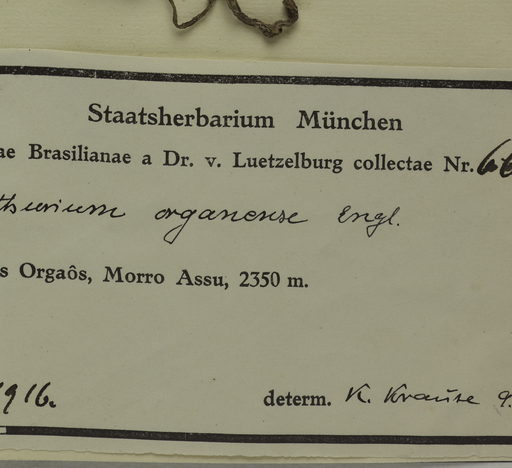 Staatsherbarium München
ae Brasilianae a Dr. v. Luetzelburg collectae Nr. 66
thurium organense Engl.
s Orgaôs, Morro Assu, 2350 m.
1916.
determ. K. Krause 9.